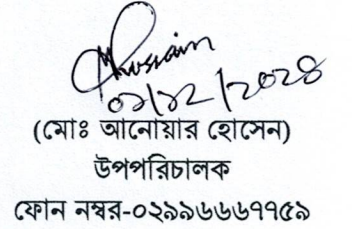 Hussain
০১/১২/২০২৪
(মোঃ আনোয়ার হোসেন)
উপপরিচালক
ফোন নম্বর-০২৯৯৬৬৬৭৭৫৯